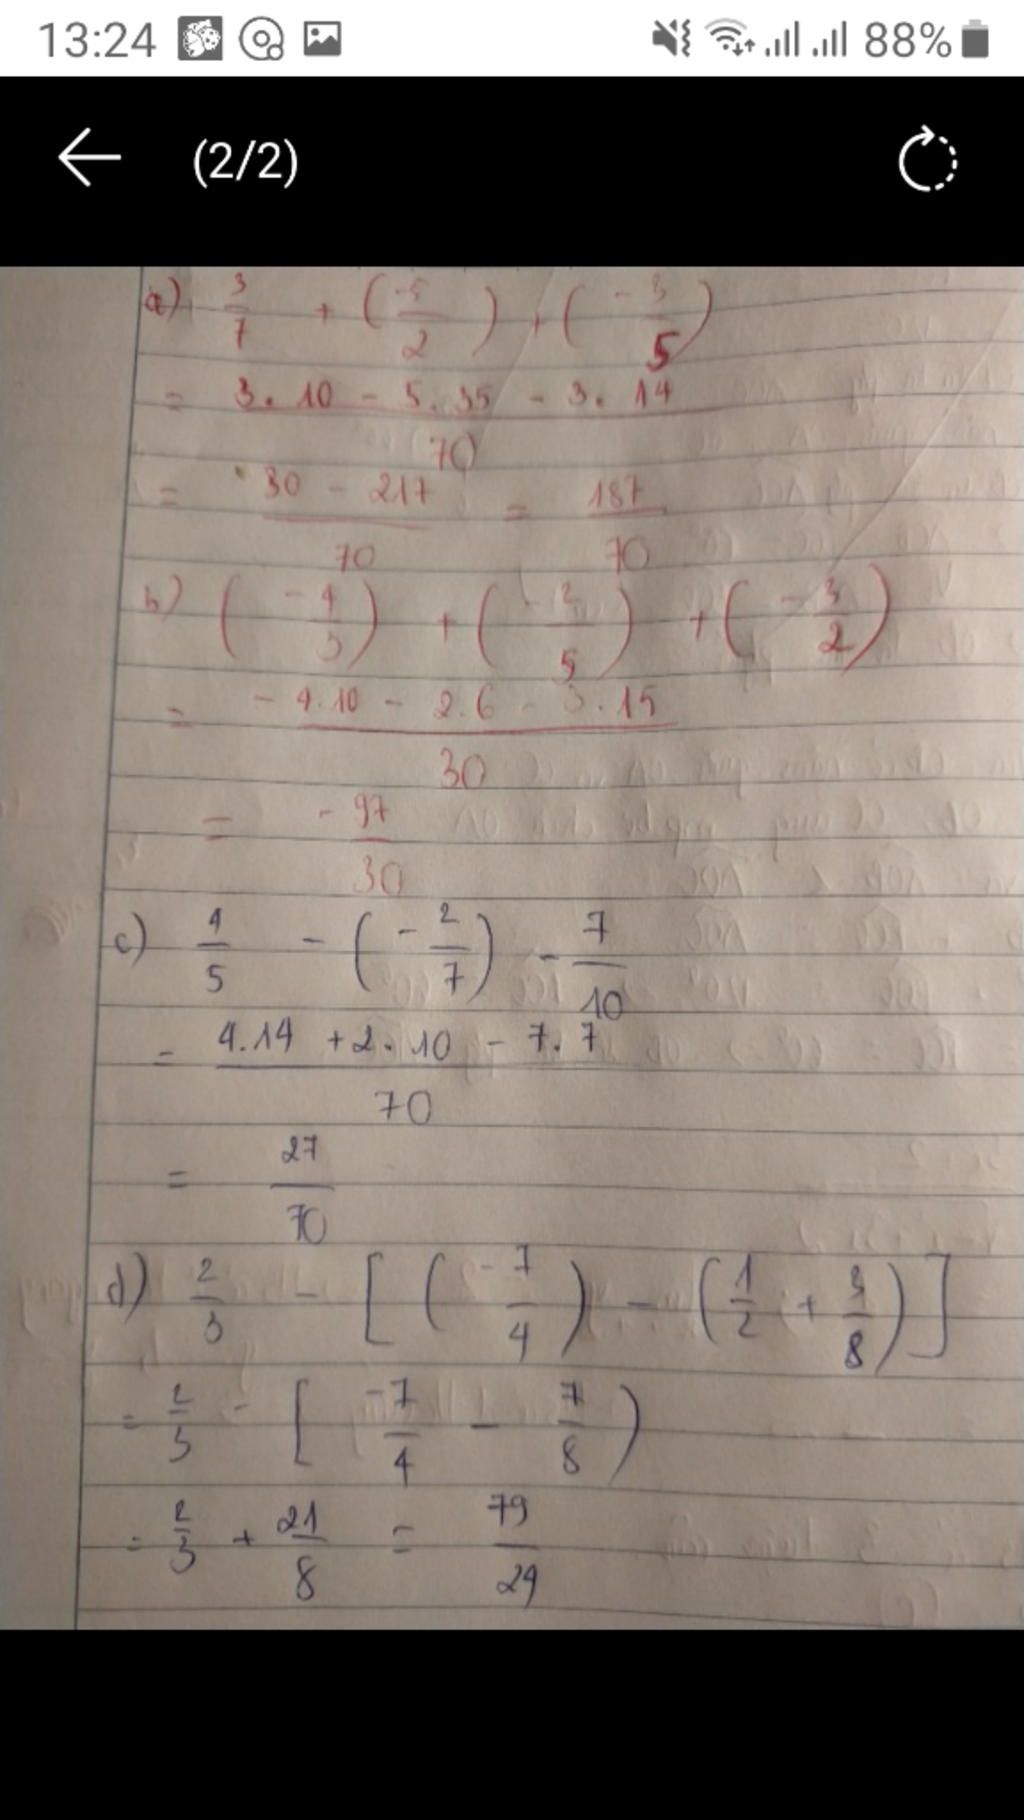 13:24 88%
(2/2)
a) 3/7 + (-5/2) + (-3/5)
= 3.10 - 5.35 - 3.14 / 70
= 30 - 217 / 70 = 187/70
b) (-4/3) + (-2/5) + (-3/2)
= -4.10 - 2.6 - 3.15 / 30
= -97/30
c) 4/5 - (-2/7) - 7/10
= 4.14 + 2.10 - 7.7 / 70
= 27/70
d) 2/3 - [(-7/4) - (1/2 + 3/8)]
= 2/3 - [-7/4 - 7/8)
= 2/3 + 21/8 = 79/24